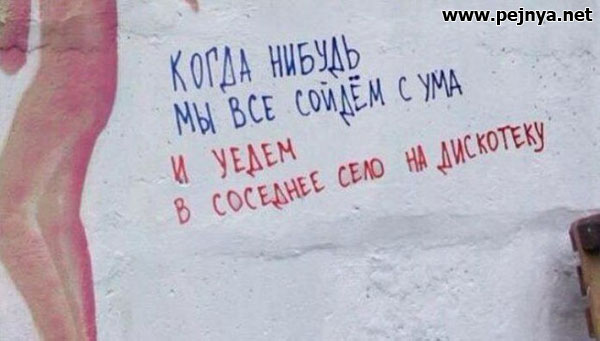 www.pejnya.net
КОГДА НИБУДЬ
МЫ ВСЕ СОЙДЁМ С УМА
И УЕДЕМ
В СОСЕДНЕЕ СЕЛО НА ДИСКОТЕКУ